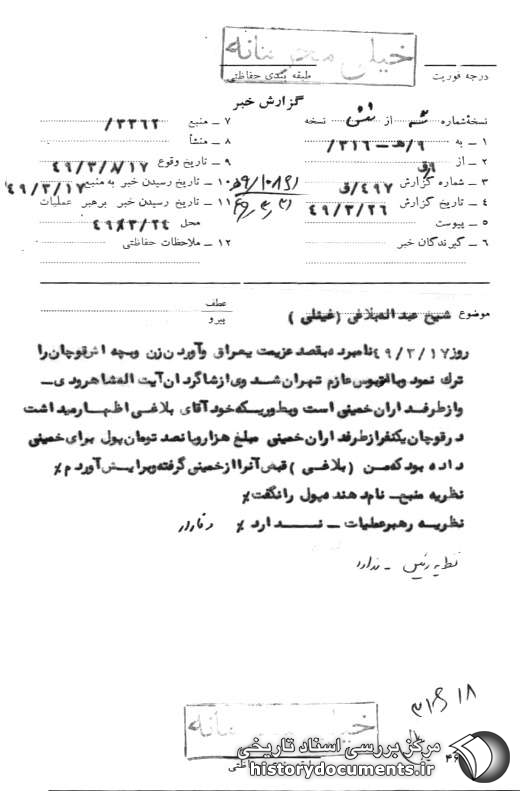 خیلی محرمانه
درجه فوریت
طبقه بندی حفاظتی
گزارش خبر
نسخه شماره سه از شش نسخه
۱ ـ به ۹/هـ ـ ۳۱۶/
۲ ـ از ۹/ق
۳ ـ شماره گزارش ۴۹۷/ق
۴ ـ تاریخ گزارش ۴۹/۳/۲۶
۵ ـ پیوست
۶ ـ گیرندگان خبر
۷ ـ منبع ۳۳۶۲/
۸ ـ منشأ
۹ ـ تاریخ وقوع ۴۹/۳/۸/۱۷
۱۰ ـ تاریخ رسیدن خبر به منبع ۴۹/۳/۱۷
۱۱ ـ تاریخ رسیدن خبر برهبر عملیات
محل ۴۹/۳/۲۴
۱۲ ـ ملاحظات حفاظتی
عطف
پیرو
موضوع شیخ عبداله بلاغی (غیئلی)
روز ۴۹/۳/۱۷ نامبرده بقصد عزیمت بعراق وآوردن زن وبچه اش قوچان را
ترک نمود وبا اتوبوس عازم تهران شد وی ازشاگردان آیت اله شاهرودی ـ
وازطرفداران خمینی است وبطوریکه خود آقای بلاغی اظهار میداشت
درقوچان یکنفر ازطرفداران خمینی مبلغ هزاروپانصد تومان پول برای خمینی
داده بود که من (بلاغی) قبض آنرا ازخمینی گرفته وبرایش آوردم ٪
نظریه منبع ـ نام دهنده پول را نگفت ٪
نظریه رهبرعملیات ـ ندارد ٪ وقارا
نظریه رئیس ـ ندارد
خیلی محرمانه
طبقه بندی حفاظتی
مرکز بررسی اسناد تاریخی
historydocuments.ir